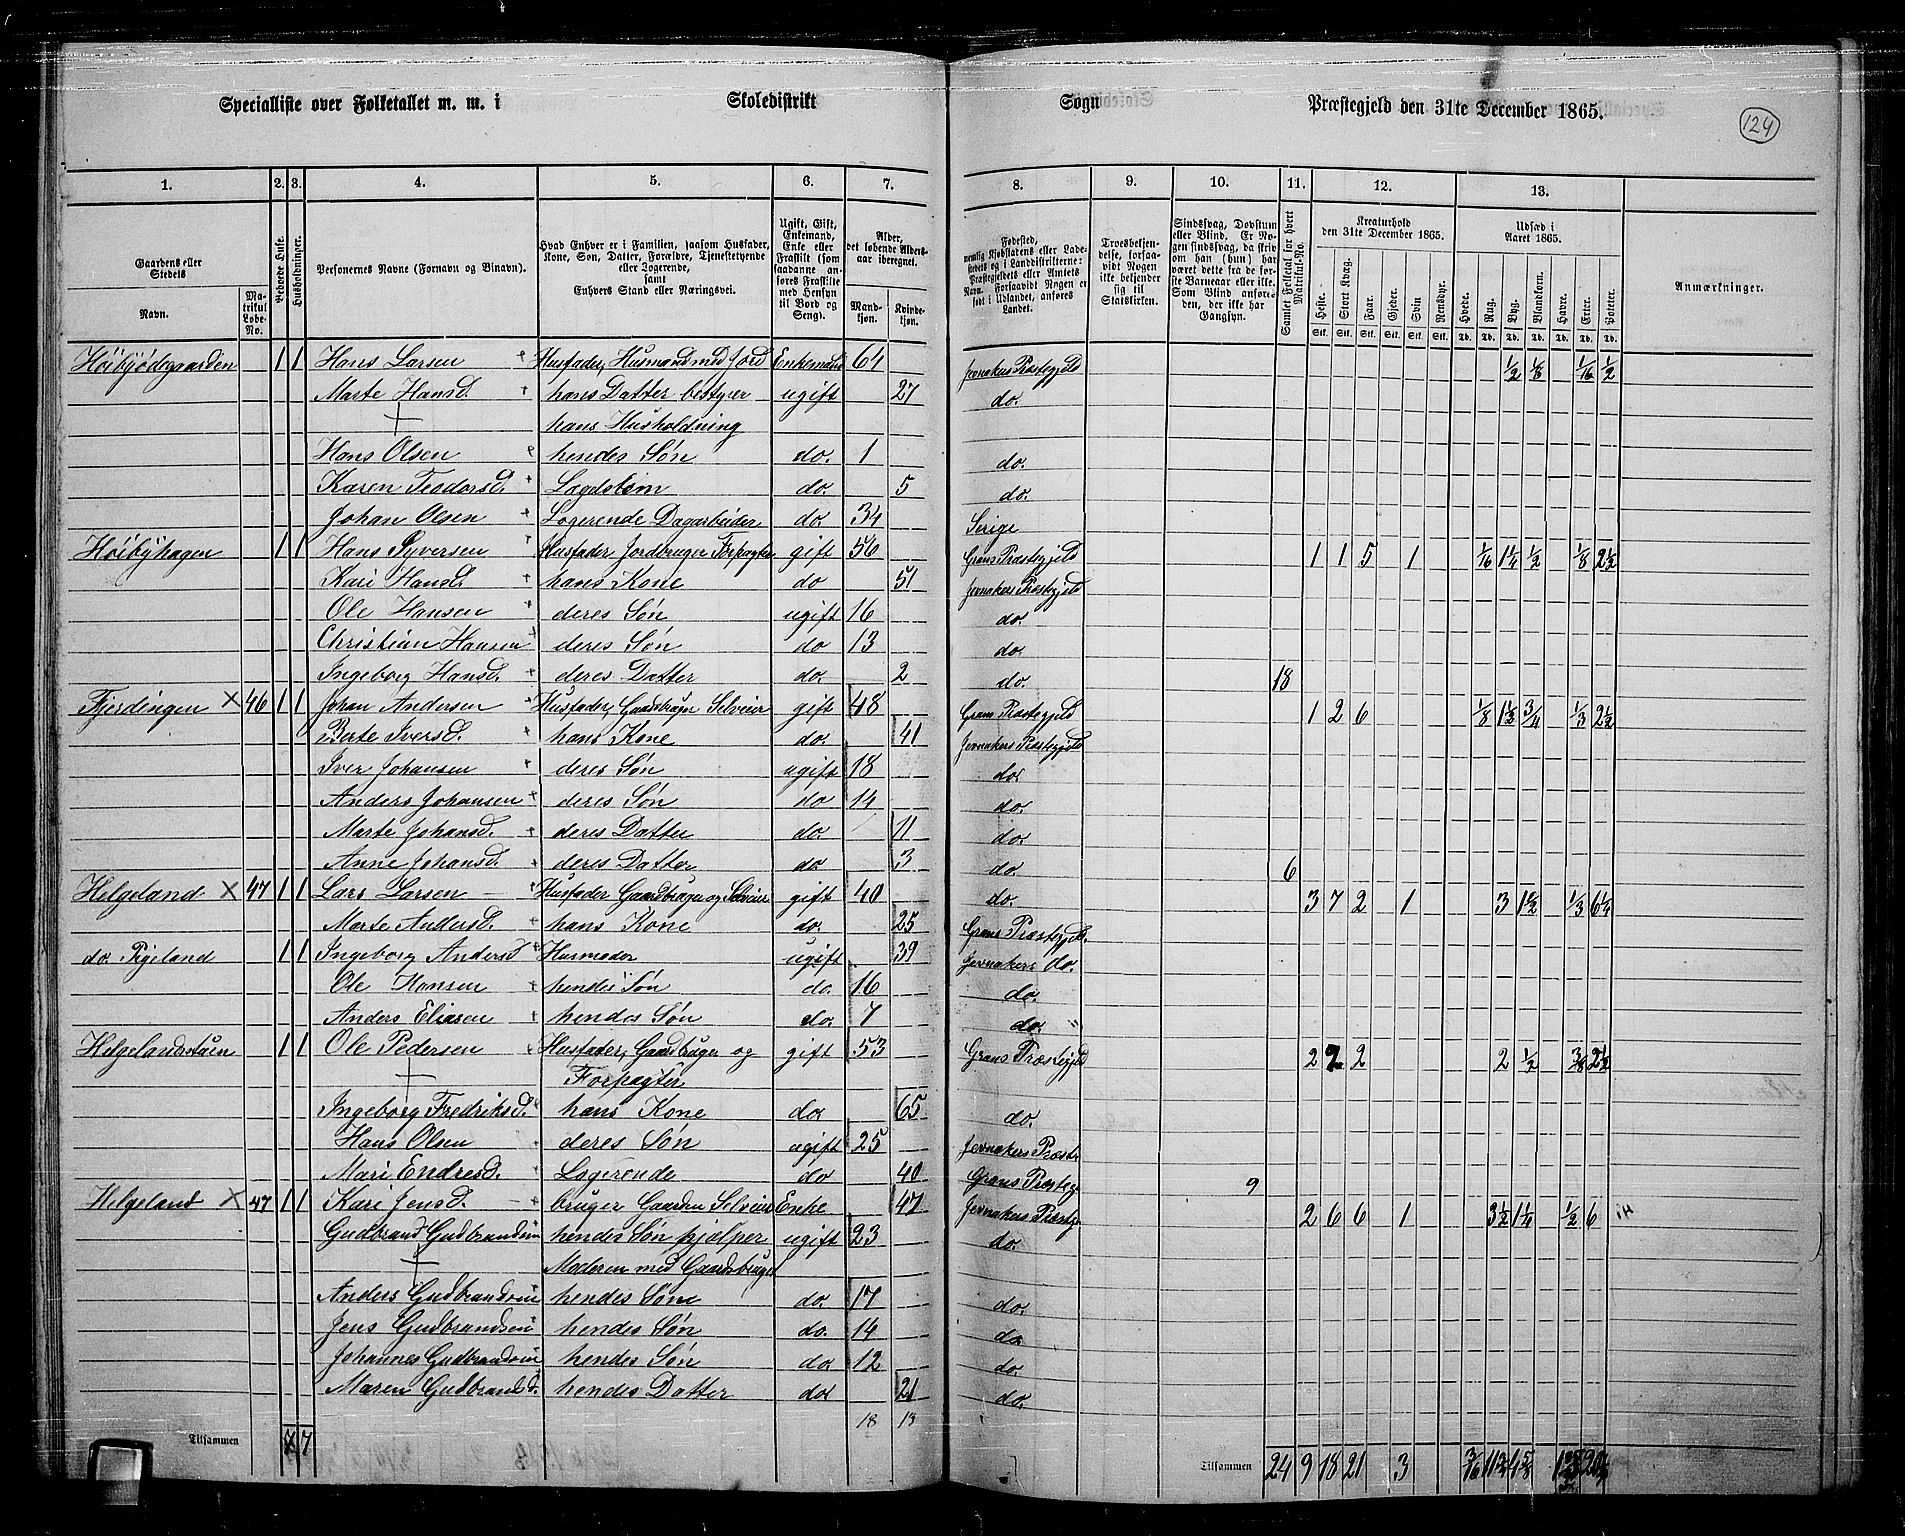 Specialliste over Folketallet m. m. i Skoledistrikt Sogn Præstegjeld den 31te December 1865.
124
1. 2. 3. 4. 5. 6. 7. 8. 9. 10. 11. 12. 13.
Gaardens eller Stedets
Navn.
Matrikul Løbe-No.
Beboede Huse.
Husholdninger.
Personernes Navne (Fornavn og Binavn).
Hvad Enhver er i Familien, saasom Husfader, Kone, Søn, Datter, Forældre, Tjenestetyende eller Logerende, samt Enhvers Stand eller Næringsvei.
Ugift, Gift, Enkemand, Enke eller Fraskilt (som saadanne anføres Fraskilte med Hensyn til Bord og Seng).
Alder, det løbende Alders-aar iberegnet.
Mand-kjøn.
Kvinde-kjøn.
Fødested, nemlig Kjøbstadens eller Ladestedets og i Landdistrikterne: Præstegjeldets eller Amtets Navn. Forsaavidt Nogen er født i Udlandet, anføres Landet.
Troesbekjendelse, forsaavidt Nogen ikke bekjender sig til Statskirken.
Sindssvag, Døvstum eller Blind. Er Nogen sindssvag, da skriv om han (hun) har været dette fra de første Barneaar eller ikke. Som Blind anføres den, der ikke har Gangsyn.
Samlet Folketal for hvert Matrikul-No.
Kreaturhold den 31te December 1865.
Heste. Stort Kvæg. Faar. Gjeder. Sviin Rensdyr.
Stk. Stk. Stk. Stk. Stk. Stk.
Udsæd i Aaret 1865.
Hvede. Rug. Byg. Blandkorn. Havre. Erter. Poteter.
Td. Td. Td. Td. Td. Td. Td.
Anmærkninger.
Høibjødegaarden 1 1 Hans Larsen Husfader, Husmand med Jord Enkemand 64 Jevnakers Præstegjeld 1/2 1/8 1/16 1/2
Marte Hansd. hans Datter bestyrer ugift 27 do.
hans Husholdning
Hans Olsen hendes Søn do. 1 do.
Karen Teodorsd. Lægdslem do. 5 do.
Johan Olsen Logerende Dagarbeider do. 34 Serige
Høibyhagen 1 1 Hans Syversen Husfader Jordbruger Forpagter gift 56 Grans Præstegjeld 1 1 5 1 1/16 1 1/4 1/2 1/8 2 1/2
Kari Hansd. hans Kone do 51 Jevnakers Præstegjeld
Ole Hansen deres Søn ugift 16 do.
Christian Hansen deres Søn do 13 do.
Ingeborg Hansd. deres Datter do. 2 do. 18
Fjerdingen × 46 1 1 Johan Andersen Husfader, Gaardbruger Selveier gift 48 Grans Præstegjeld 1 2 6 1/8 1 1/3 3/4 1/3 2 1/2
Berte Iversd. hans Kone do. 41 Jevnakers Præstegjeld
Iver Johansen deres Søn ugift 18 do.
Anders Johansen deres Søn do 14 do.
Marte Johansd. deres Datter do. 11 do.
Anne Johansd. deres Datter do 3 do. 6
Helgeland × 47 1 1 Lars Larsen Husfader Gaardbruger og Selveier gift 40 do. 3 7 2 1 3 1 1/2 1/3 6 1/4
Marte Andersd. hans Kone do. 25 Grans Præstegjeld.
do. Pigeland 1 1 Ingeborg Andersd Husmoder ugift 39 Jevnakers do.
Ole Hansen hendes Søn do. 16 do.
Anders Eliasen hendes Søn do. 7 do. "
Helgelandsstuen 1 1 Ole Pedersen Husfader, Gaardbruger og gift 53 Grans Præstegjeld 2 7 2 2 1/2 3/8 2 1/2
Forpagter
Ingeborg Fredriksd. hans Kone do. 65 do.
Hans Olsen deres Søn ugift 25 Jevnakers Præst.
Mari Endresd. Logerende do 40 Grans Præsteg. 9
Helgeland × 47 1 1 Kari Jensd. bruger Gaarden Selveier Enke 47 Jevnakers Præstg. 2 6 6 1 3 1/2 1 1/4 1/2 6
Gudbrand Gudbrandsen hendes Søn hjælper ugift 23 do.
Moderen med Gaardsbruget
Anders Gudbrandsen hendes Søn do. 17 do.
Jens Gudbrandsen hendes Søn do. 14 do.
Johannes Gudbrandsen hendes Søn do. 12 do.
Maren Gudbrandsd. hendes Datter do. 21 do.
18 13
Tilsammen 7 7 Tilsammen 24 9 18 21 3 3/16